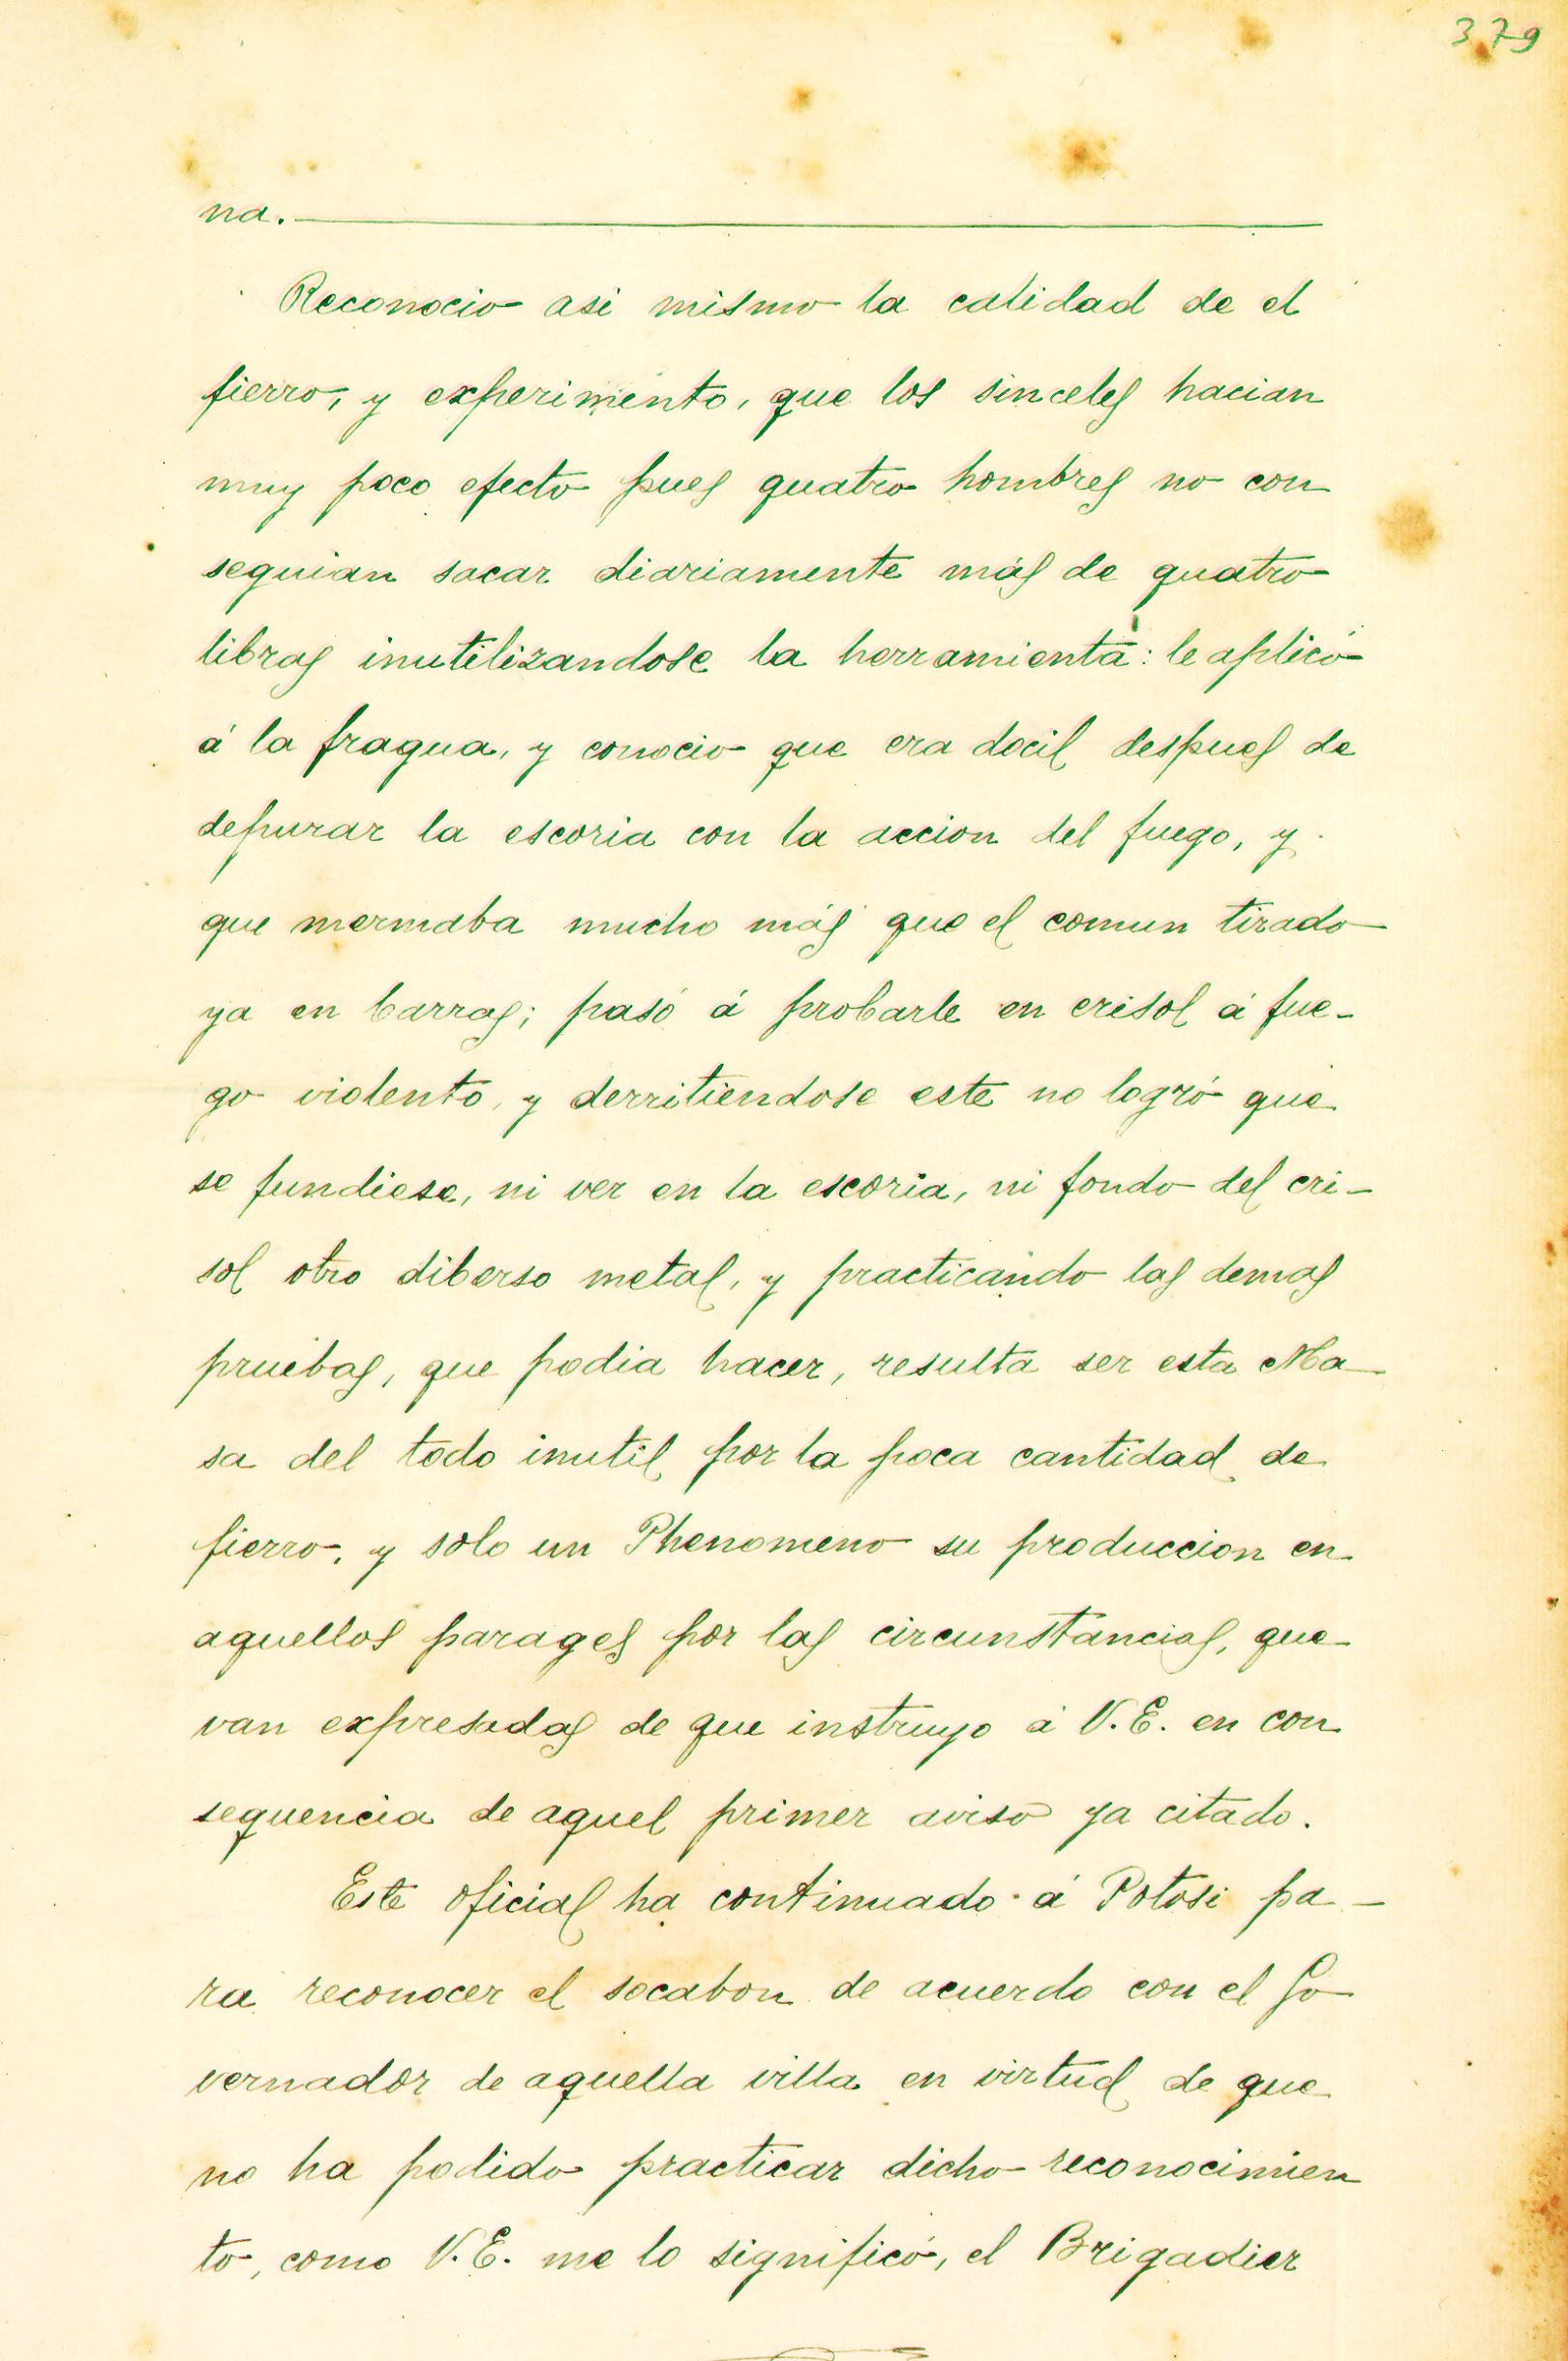 379
na.
Reconocio asi mismo la calidad de el
fierro, y experimento, que los sinceles hacian
muy poco efecto pues quatro hombres no con
seguian sacar diariamente más de quatro
libras inutilizandose la herramienta: le aplicó
á la fragua, y conocio que era docil despues de
depurar la escoria con la accion del fuego, y
que mermaba mucho más que el comun tirado
ya en barras; pasó á probarle en crisol á fue-
go violento, y derritiendose este no logró que
se fundiese, ni ver en la escoria, ni fondo del cri-
sol otro diberso metal, y practicando las demas
pruebas, que podia hacer, resulta ser esta Ma-
sa del todo inutil por la poca cantidad de
fierro, y solo un Phenomeno su produccion en
aquellos parages por las circunstancias, que
van expresadas de que instruyo á V.E. en con
sequencia de aquel primer aviso ya citado.
Este oficial ha continuado á Potosi pa-
ra reconocer el socabon de acuerdo con el Go
vernador de aquella villa en virtud de que
no ha podido practicar dicho reconocimien
to, como V.E. me lo significó, el Brigadier